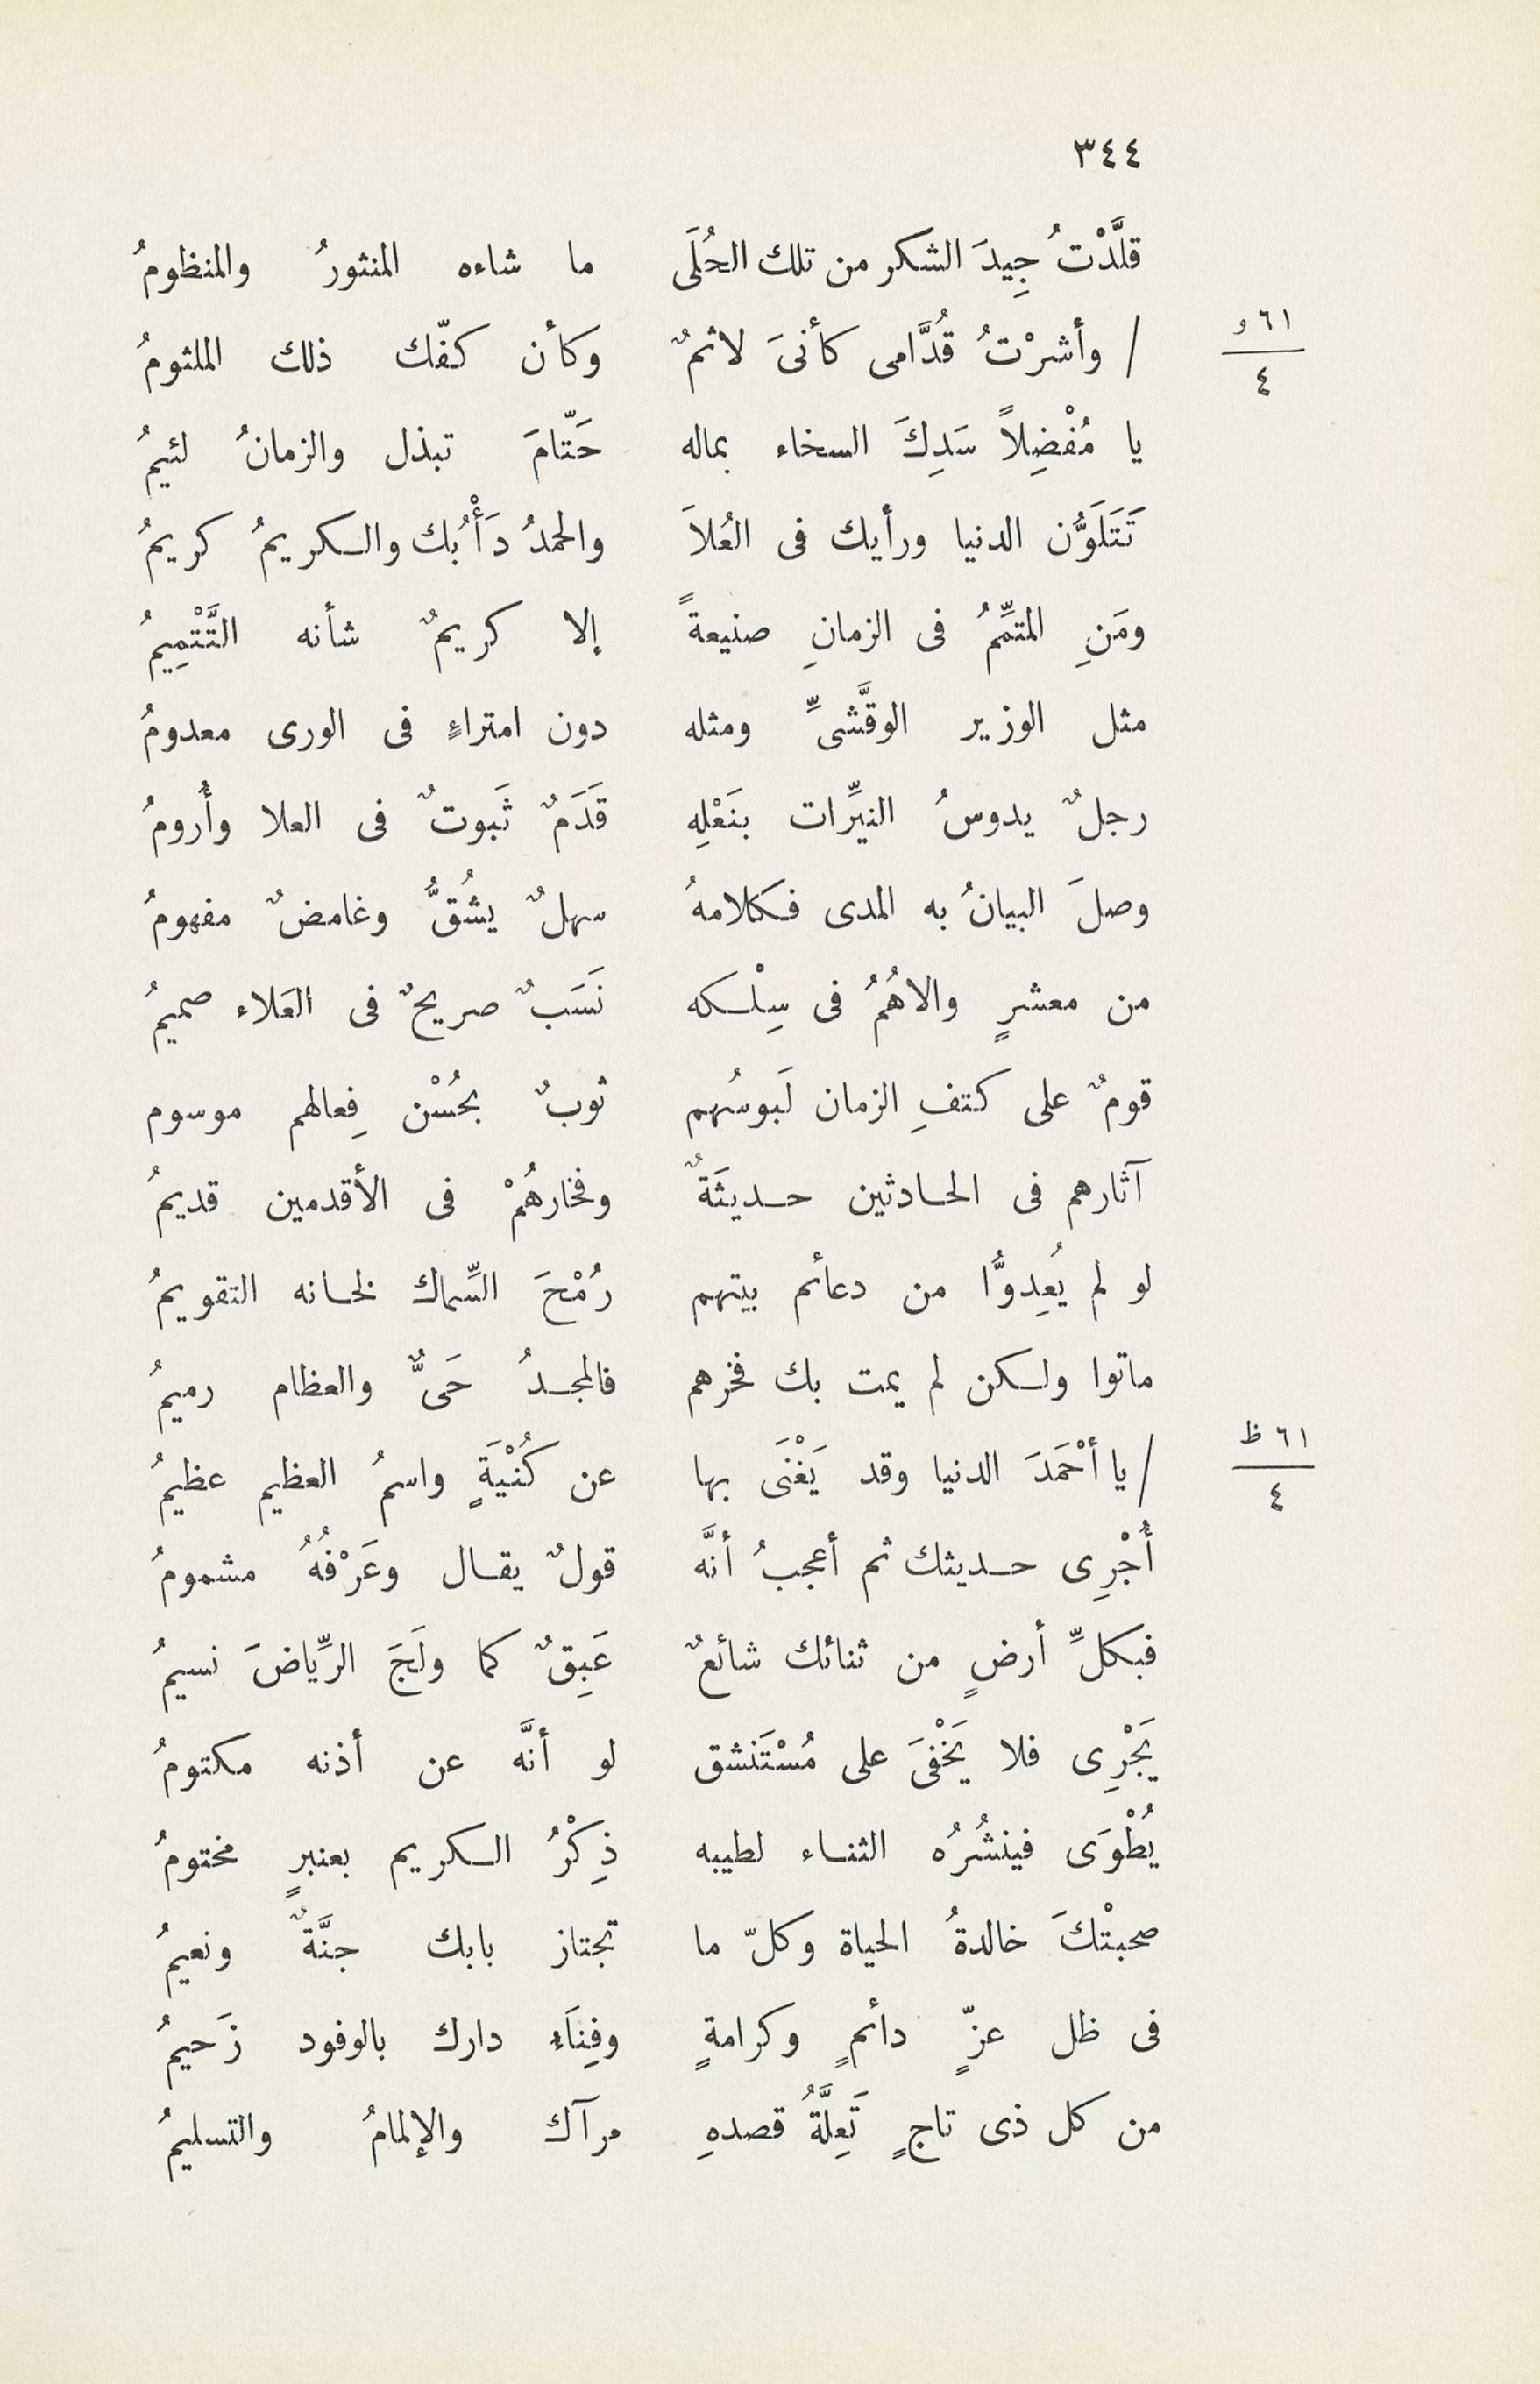 ٣٤٤
قلَّدْتُ جِيدَ الشكر من تلك الحُلَى ما شاءه المنثورُ والمنظومُ
٦١ و
/ وأشرْتُ قُدَّامى كأنىَ لاثمٌ وكأن كفّك ذلك الملثومُ
٤
يا مُفْضِلاً سَدِكَ السخاء بماله حَتّامَ تبذل والزمانُ لئيمُ
تَتَلَوَّن الدنيا ورأيك فى العُلاَ والحمدُ دَأْبُك والكريمُ كريمُ
ومَنِ المتمِّمُ فى الزمانِ صنيعةً إلا كريمٌ شأنه التَّتْمِيمُ
مثل الوزير الوقَّشىِّ ومثله دون امتراءٍ فى الورى معدومُ
رجلٌ يدوسُ النيِّرات بنَعْلِهِ قَدَمٌ ثَبوتٌ فى العلا وأُرومُ
وصلَ البيانُ به المدى فكلامهُ سهلٌ يشُقُّ وغامضٌ مفهومُ
من معشرٍ والاهُمُ فى سِلْكه نَسَبٌ صريحٌ فى العَلاء صميمُ
قومٌ على كتفِ الزمان لَبوسُهم ثوبٌ بحُسْن فِعالهم موسوم
آثارهم فى الحادثين حديثَةٌ وفخارهُمْ فى الأقدمين قديمُ
لو لم يُعِدوُّا من دعائم بيتهم رُمْحَ السِّماك لخانه التقويمُ
ماتوا ولكن لم يمت بك فخرهم فالمجدُ حَىٌّ والعظام رميمُ
٦١ ظ
/ يا أحْمَدَ الدنيا وقد يَغْنَى بها عن كُنْيَةٍ واسمُ العظيم عظيمُ
٤
أُجْرِى حديثك ثم أعجبُ أنَّه قولٌ يقال وعَرْفُهُ مشمومُ
فبكلِّ أرضٍ من ثنائك شائعٌ عَبِقٌ كما ولَجَ الرِّياضَ نسيمُ
يَجْرِى فلا يَخْفىَ على مُسْتَنشق لو أنَّه عن أذنه مكتومُ
يُطْوَى فينشُرُه الثناء لطيبه ذِكْرُ الكريم بعنبرٍ مختومُ
صحبتْكَ خالدةُ الحياة وكلّ ما تجتاز بابك جنَّةٌ ونعيمُ
فى ظل عزّ دائمٍ وكرامةٍ وفِنَاءِ دارك بالوفود زَحيمُ
من كل ذى تاجٍ تَعِلَّةُ قصدهِ مرآك والإلمامُ والتسليمُ